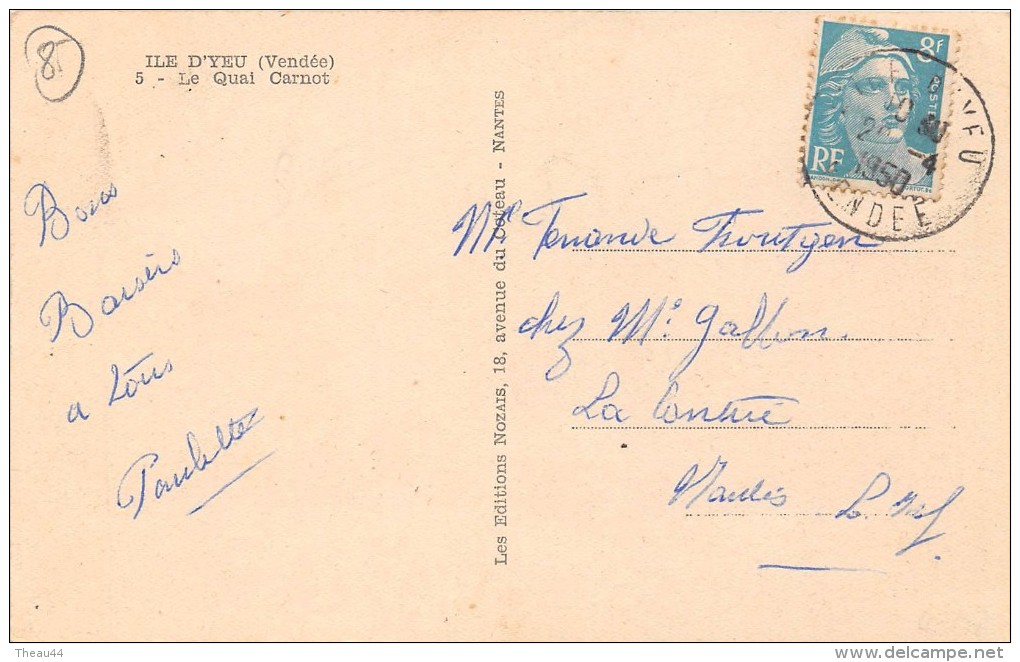 85
ILE D'YEU (Vendée)
5 - Le Quai Carnot
Bons
Baisers
a tous
Paulette
Les Editions NOZAIS, 18, avenue du Coteau - NANTES
8f
POSTES
RF
YEU
1950
VENDEE
chez Mr Gallon.
La Contrie
Nantes L. Inf.
Theau44
delcampe.net